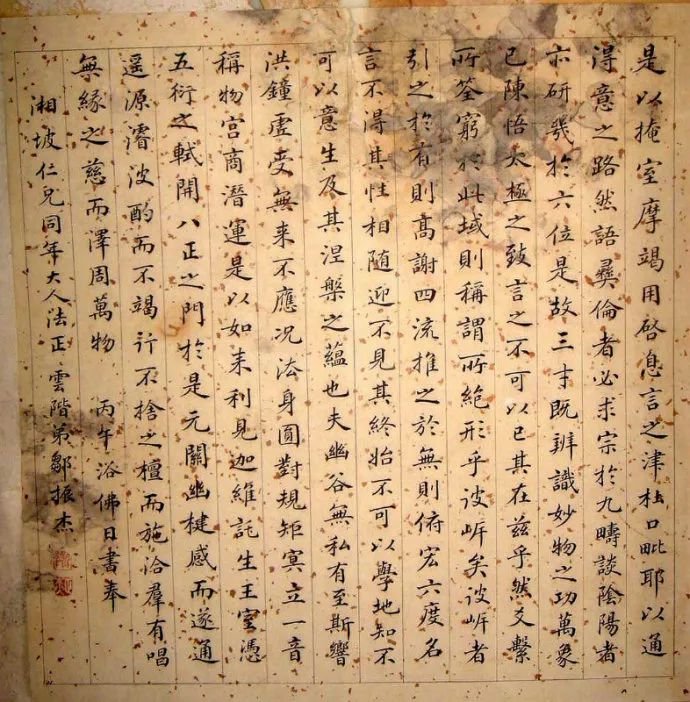 是以掩室摩竭用啓息言之津杜口毗耶以通
得意之路然語彝倫者必求宗於九疇談陰陽者
亦研幾於六位是故三才既辨識妙物之功萬象
已陳悟太極之致言之不可以已其在兹乎然爻繫
所筌窮於此域則稱謂所絕形乎彼岸矣彼岸者
引之於有則高謝四流推之於無則俯宏六度名
言不得其性相随迎不見其終始不可以學地知不
可以意生及其涅槃之蘊也夫幽谷無私有至斯響
洪鐘虛受無来不應况法身圓對規矩冥立一音
稱物宮商潛運是以如来利見迦維託生王室憑
五衍之軾開八正之門於是元關幽楗感而遂通
遥源濬波酌而不竭行不捨之檀而施洽羣有唱
無緣之慈而澤周萬物 丙午浴佛日書奉
湘坡仁兄同年大人法正雲階弟鄒振杰